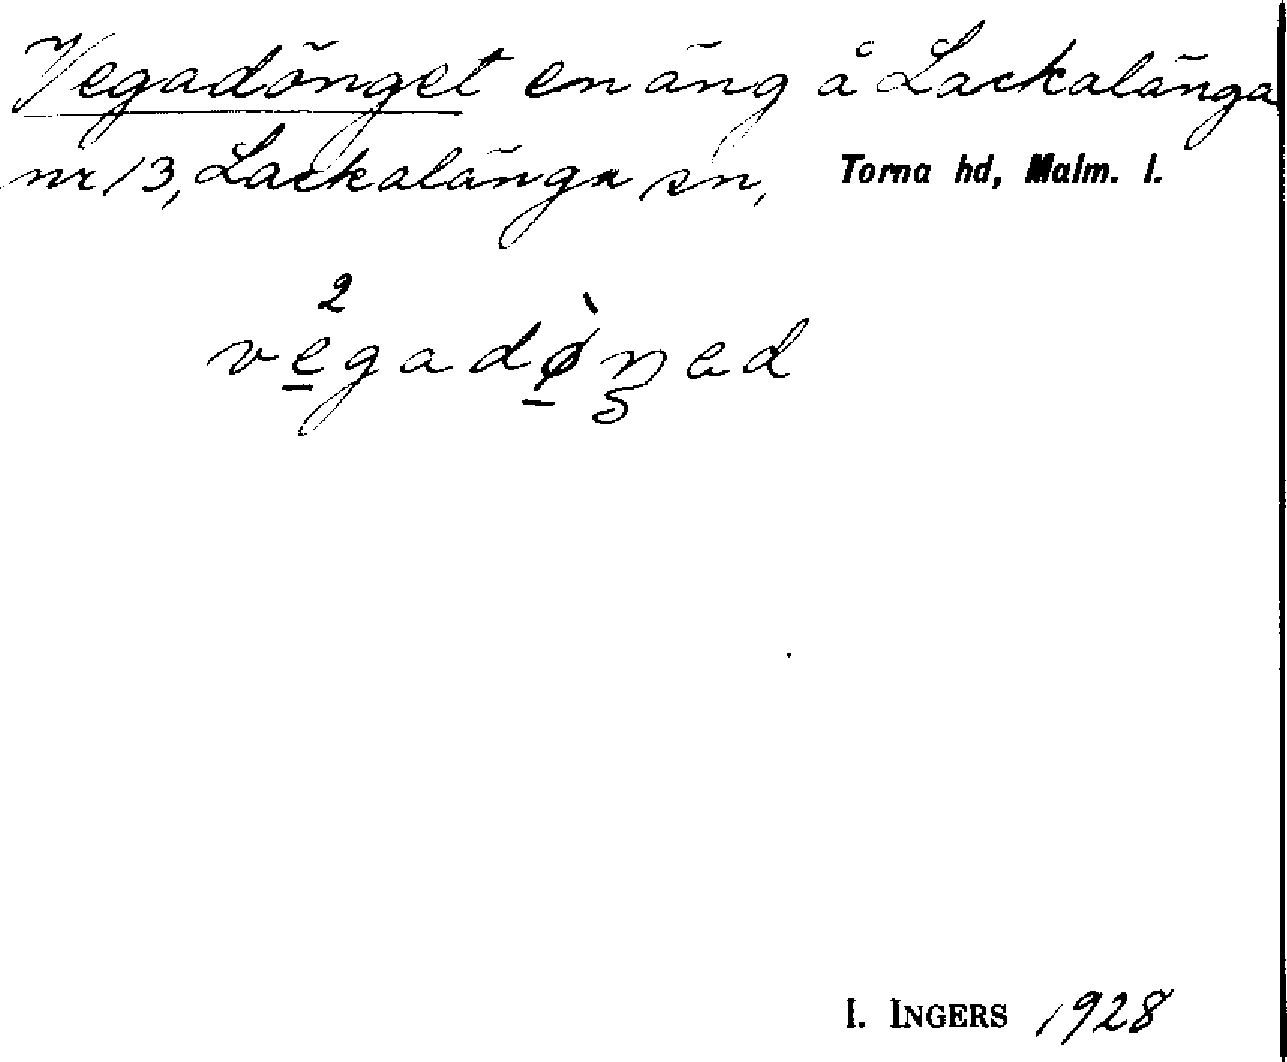 Vegadönget en äng å Lackalänga
nr 13, Lackalänga sn, Torna hd, Malm. l.
ve̲²gadø̲̀ŋad
I. INGERS 1928